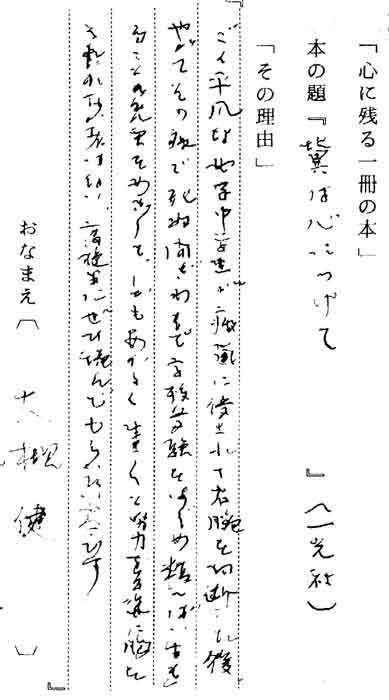 「心に残る一冊の本」
本の題『翼は心につけて』(一光社)
「その理由」
ごく平凡な女子中学生が病魔に侵されて右腕を切断され後
やがてその病で死ぬ間ぎわまで高校受験をはじめ精いっぱい生き
ることの充実をめざして、しかも明るく生きぬく努力する姿に胸を
ぜひ読んでもらいたい本です
おなまえ〔大槻 健〕